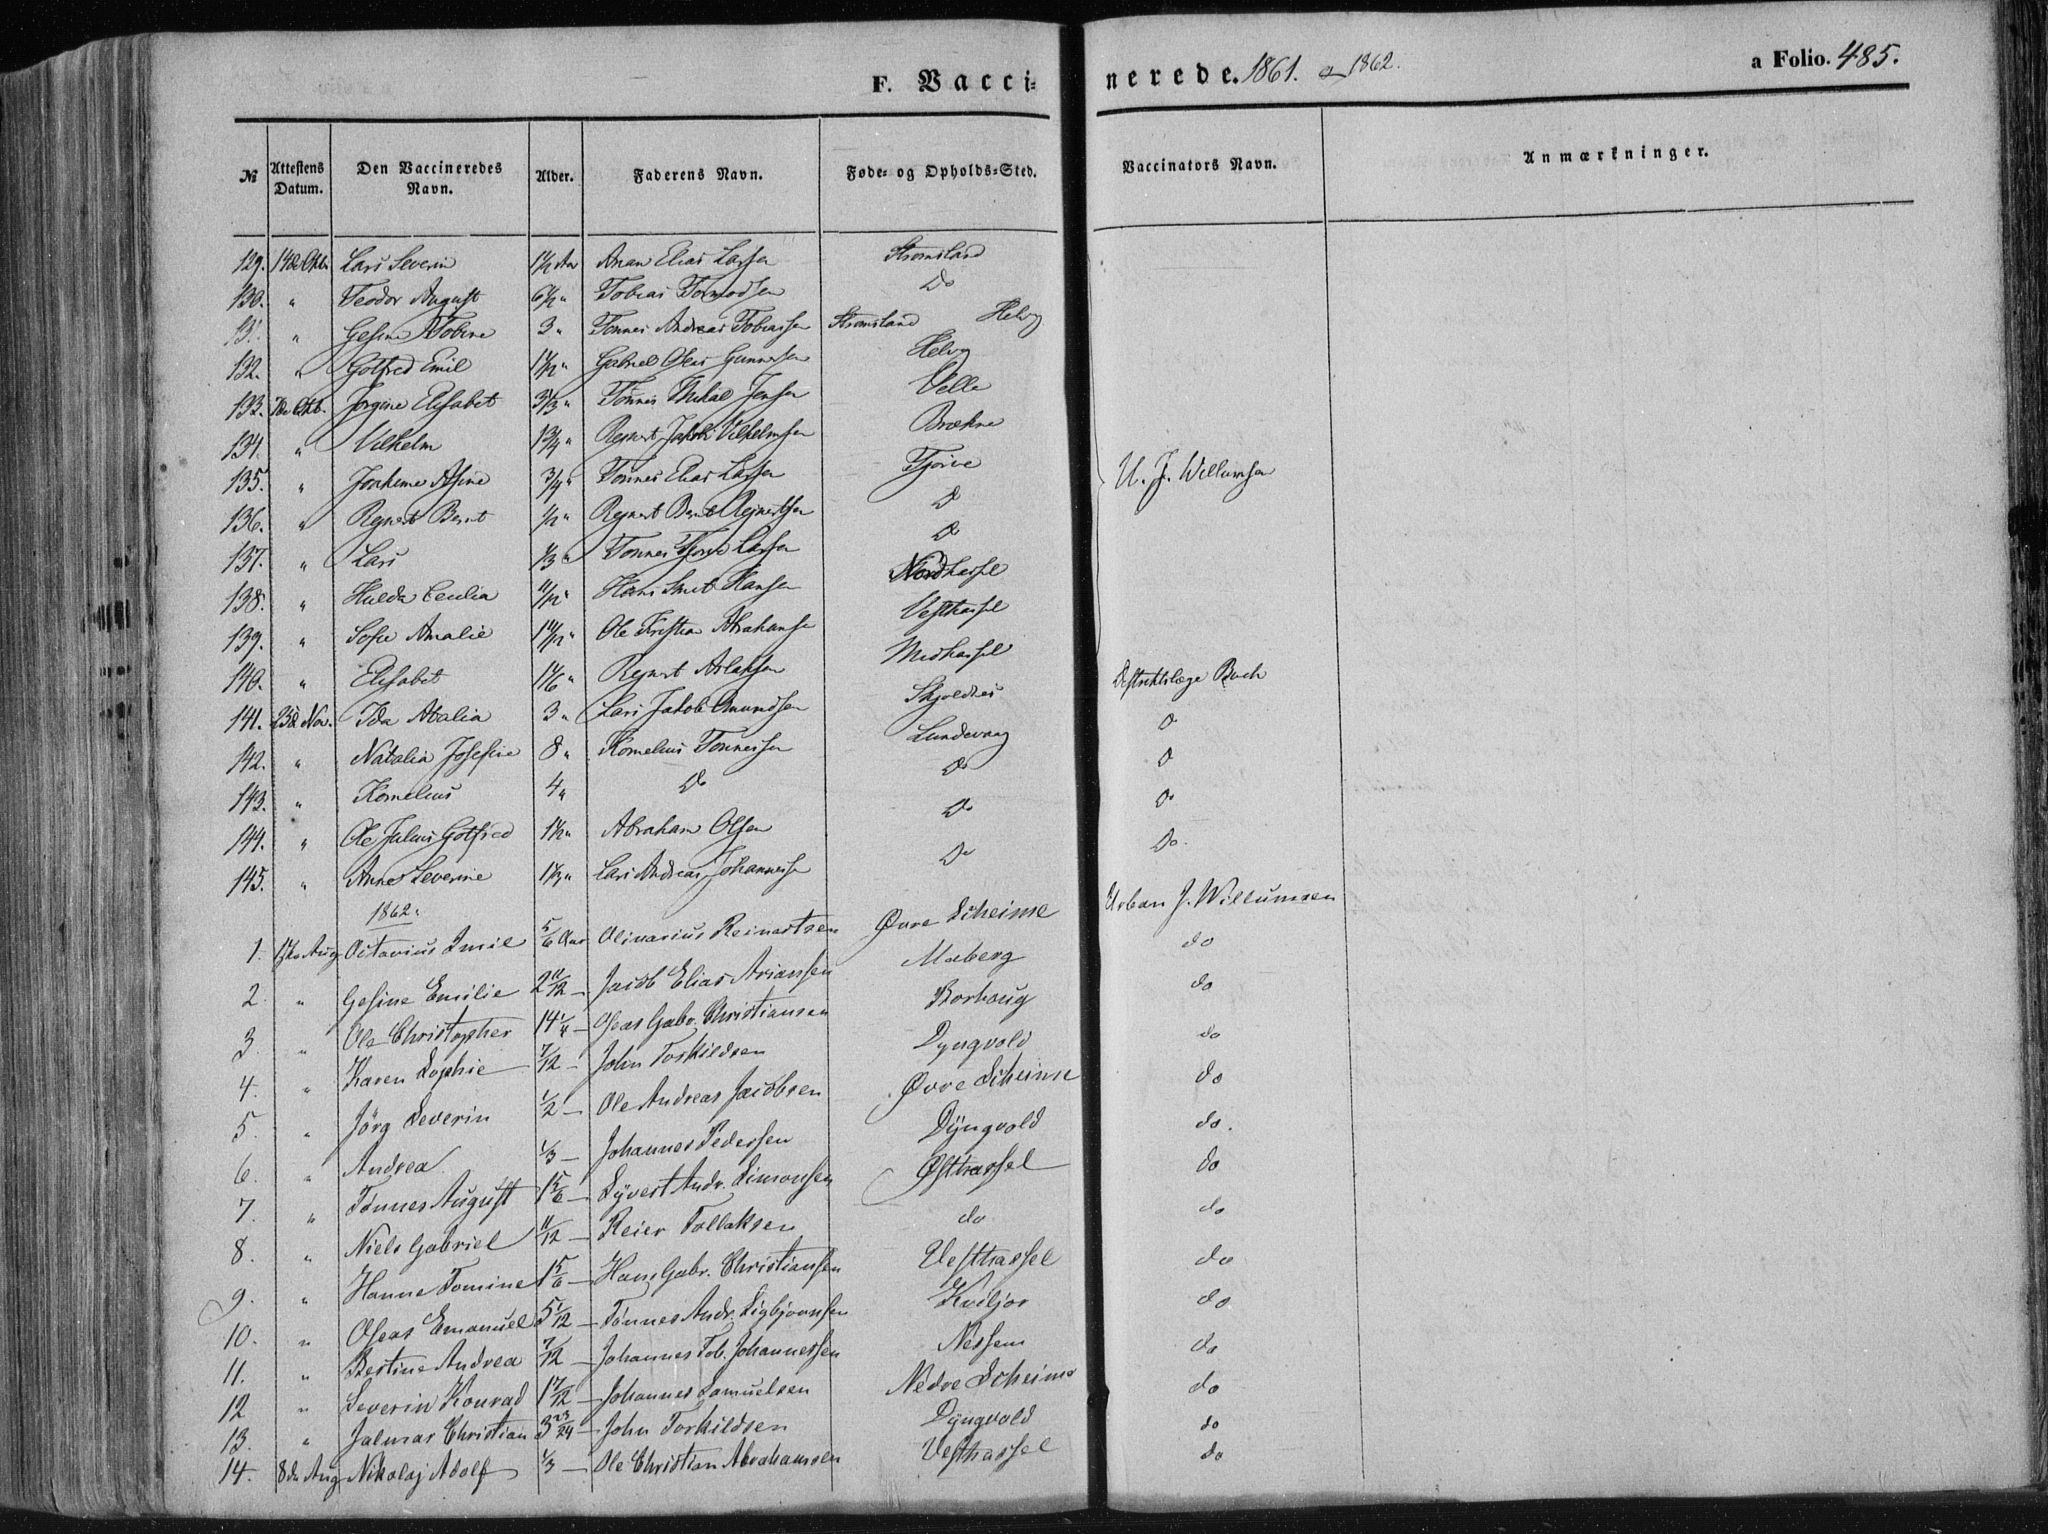 F. Vacci- nerede. 1861. og 1862. a Folio. 485.
№ Attestens Datum. Den Vaccineredes Navn. Alder. Faderens Navn. Føde- og Opholds-Sted. Vaccinators Navn. Anmærkninger.
129. 14de Lars Severin 1 1/2 Aar Elias Larsen Stromsland
130. " Teodor August 6 1/2 " Tobias Tormodsen Do
131. " Gesine Tobine 3 " Tønnes Andreas Tobiassen Stromsland Helvig
132. " Gotfred Emil " Gabriel Oseas Gunnersen Helvig
133. Jorgine Elisabet 3 1/3 " Tønnes Mikal Jensen Velle
134. " Vilhelm 1 3/4 " Rejnert Jakob Vilhelmsen Brækne
135. " Joakime Asine 3/4 " Tønnes Elias Larsen Tjorve U. J. Willumsen
136. " Rejnert Bernt 1/2 " Rejnert Bernt Rejnertsen Do
137. " Lars 1/3 " Tønnes Tjorve Larsen Do
138. " Hulda Cecilia 11/12 " Hans Smit Hansen Nordhassel
139. " Sofie Amalie " Ole Kristian Abrahamsen Vesthassel
140. " Elisabet 1 1/6 " Rejnert Aslaksen Midhassel Destriktslæge Buch
141. 23de Nov. Ida Atalia 3 " Lars Jakob Omundsen Skjoldnes Do
142. " Natalia Josefine 8 " Kornelius Tønnessen Lundevaag Do
143. " Kornelius 4 " Do Do Do
144. " Ole Julius Gotfred 1 1/2 " Abraham Olsen Do Do.
145. " Anne Severine 1 1/3 " Lars Andreas Johannesen Do
1862.
1. 17de Aug Octavius Imil 5/6 Aar Olivarius Reinertsen Øvre Scheime Urban J. Willumsen
2. " Gesine Emilie 2 11/12 — Jacob Elias Ariansen Maberg do
3. " Ole Christopher 14 1/4 — Oseas Gabr. Christiansen Borhaug do
4. " Karen Sophie 7/12 — John Torkildsen Dyngvold do
5. " Jörg Severin 1/2 — Ole Andreas Jacobsen Øvre Scheime do
6. " Andrea 1/3 — Johannes Pedersen Dÿngvold do.
7. " Tønnes August 1 5/6 — Sÿvert Andr. Simonsen Østhassel do
8. " Niels Gabriel 11/12 — Reier Tollaksen do do
9. " Hanne Tomine 1 5/6 — Hans Gabr. Christiansen Vesthassel do
10. " Oseas Emanuel 5 1/12 — Tønnes Andr. Sigbjørnsen Kviljor do
11. " Bertine Andrea 7/12 — Johannes Tob. Johannessen Nessem do
12 " Severin Konrad 1 7/12 — Johannes Samuelsen Nedre Scheime do
13. " Jalmar Christian 3 23/24 — John Torkildsen Dÿngvold do
14. 8de Aug Nikolaj Adolf 1/3 — Ole Christian Abrahamsen Vesthassel do